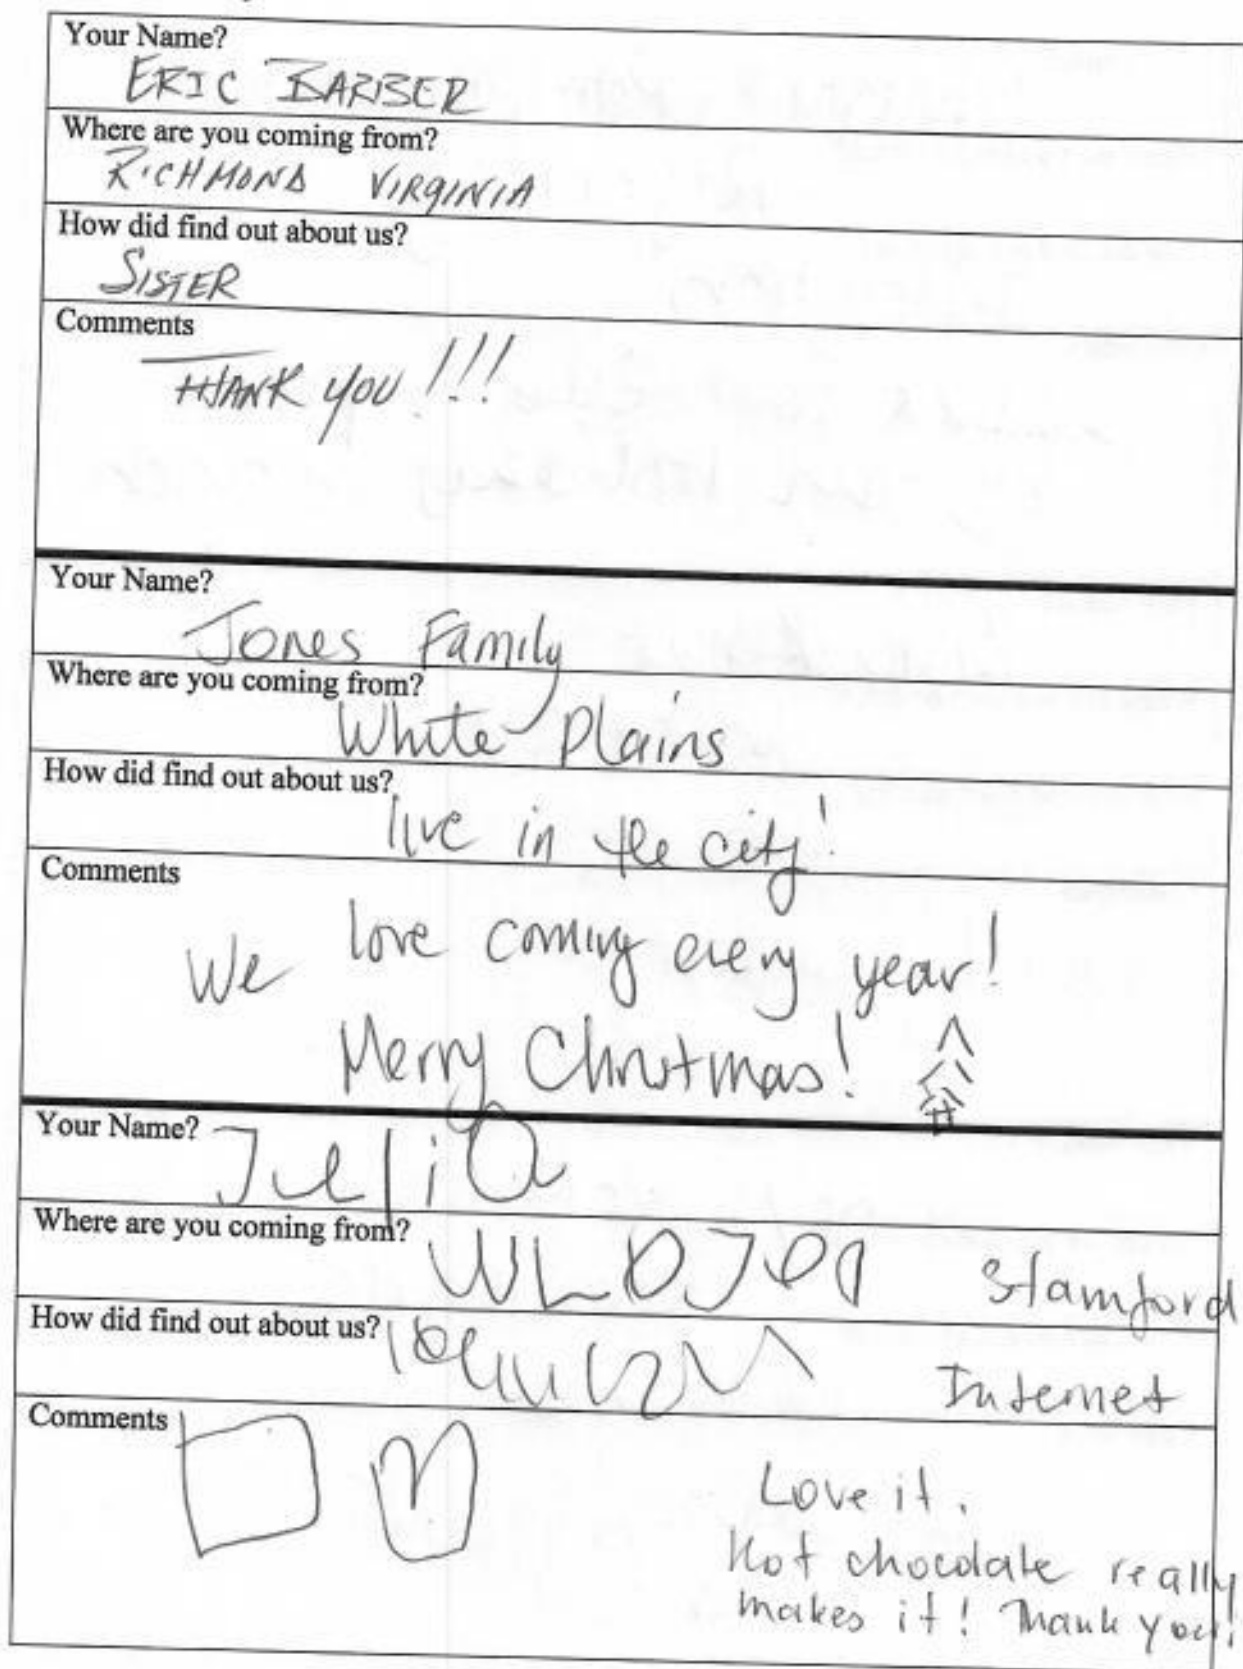 Your Name?
ERIC BARBER
Where are you coming from?
RICHMOND VIRGINIA
How did find out about us?
SISTER
Comments
THANK YOU!!!
Your Name?
Jones Family
Where are you coming from?
White Plains
How did find out about us?
live in the city!
Comments
We love coming every year!
Merry Christmas!
Your Name?
Julia
Where are you coming from?
Stamford
How did find out about us?
Internet
Comments
Love it.
Hot chocolate really
makes it! Thank you!